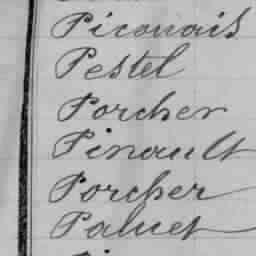 Piconais
Pestel
Porcher
Pinault
Porcher
Paluet